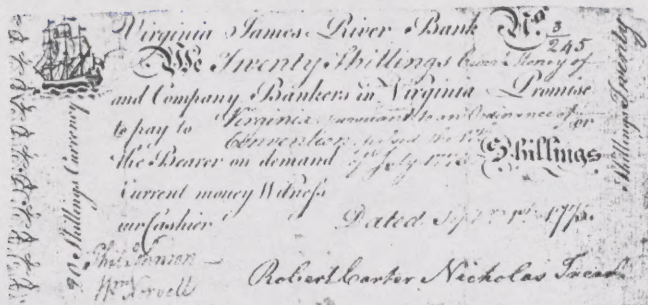 Virginia James River Bank No. 3/245
We Twenty Shillings Curr. Money of
and Company Bankers in Virginia Promise
to pay to Virginia pursuant to an Ordinance of
Convention passed the 17th or
the Bearer on demand of July 1775. Shillings
Current money Witness
our Cashier Dated Sept. 1st 1775.
Phil Johnson
Wm Norvell
Robert Carter Nicholas Treas
20 Shillings Currency
Shillings Twenty